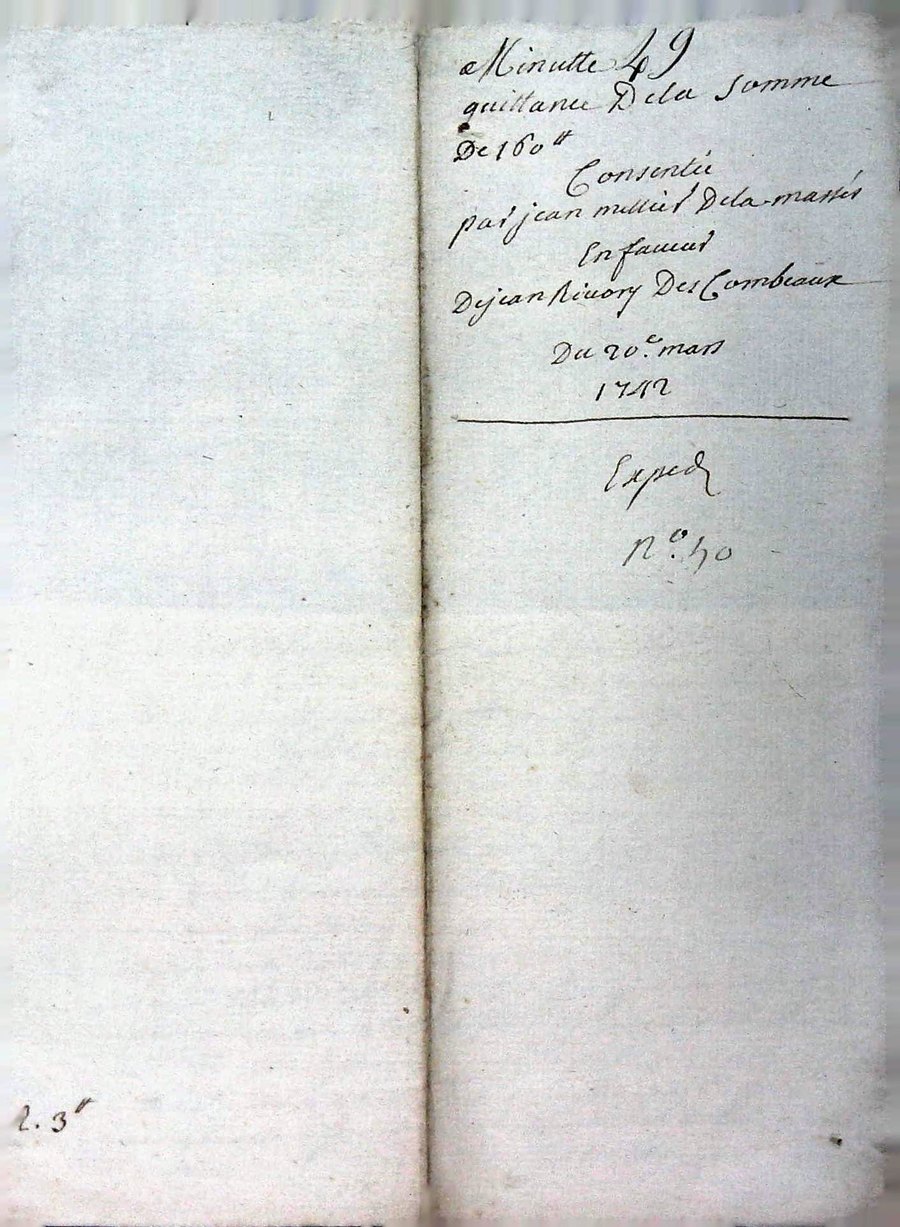 Minutte 49
quittance Dela somme
De 160#
Consentie
par jean mellier Dela masses
En faveur
De jean Rivory Des Combeaux
Du 20.e mars
1742
Exped
N.o 50
2. 3#